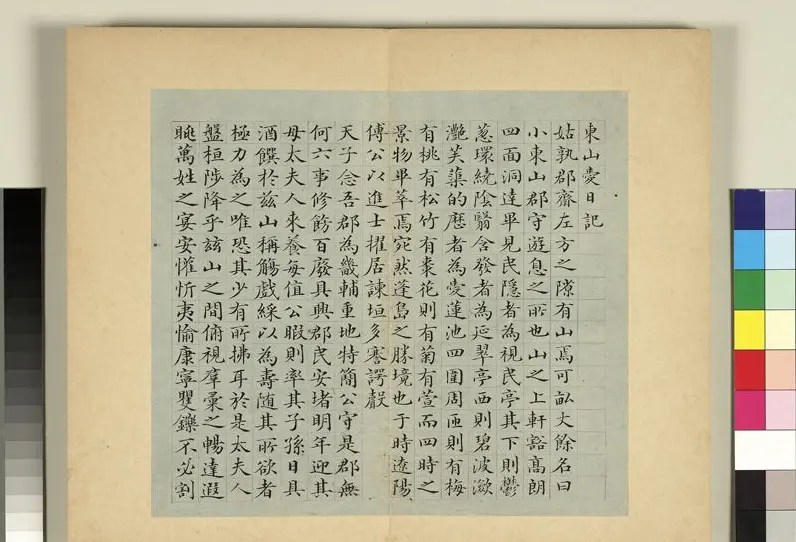 東山愛日記
姑孰郡齋左方之隙有山焉可畝丈餘名曰
小東山郡守遊息之所也山之上軒豁高朗
四面洞達畢見民隱者為視民亭其下則鬱
蔥環繞陰翳含發者為延翠亭西則碧波瀲
灩芙蕖的歷者為愛蓮池四圍周匝則有梅
有桃有松竹有棗花則有菊有萱而四時之
景物畢萃焉宛然蓬島之勝境也于時遼陽
傅公以進士擢居諫垣多謇諤聲
天子念吾郡為畿輔重地特簡公守是郡無
何六事修飭百廢具興郡民安堵明年迎其
母太夫人來養每值公暇則率其子孫日具
酒饌於茲山稱觴戲綵以為壽隨其所欲者
極力為之唯恐其少有所拂耳於是太夫人
盤桓陟降乎茲山之間俯視羣彙之暢達遐
眺萬姓之宴安懽忻夷愉康寧矍鑠不必割